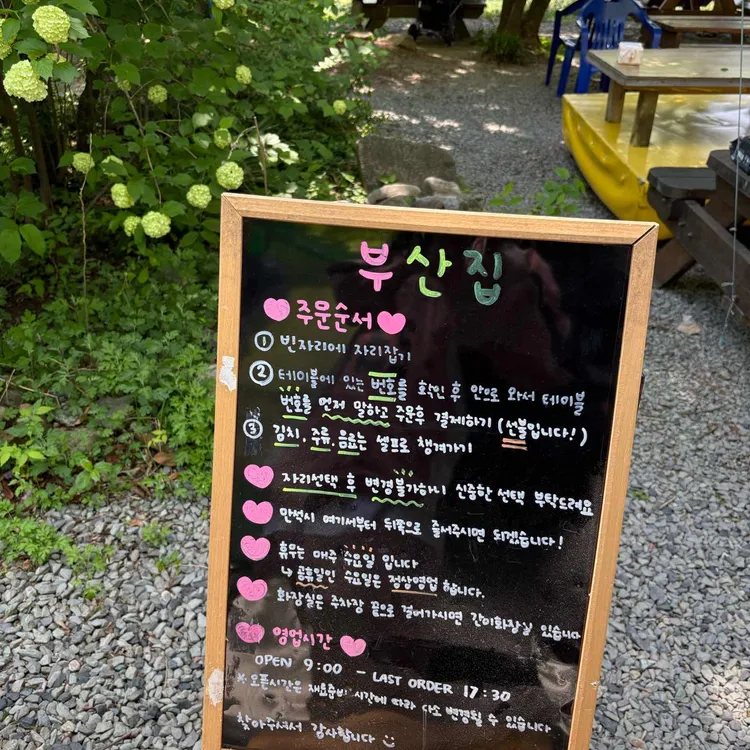 부산집
주문순서
① 빈자리에 자리잡기
② 테이블에 있는 번호를 확인 후 안으로 와서 테이블
번호를 먼저 말하고 주문후 결제하기 (선불입니다!)
③ 김치, 주류, 음료는 셀프로 챙겨가기
자리선택 후 변경불가하니 신중한 선택 부탁드려요
만석시 여기서부터 뒤쪽으로 줄서주시면 되겠습니다!
휴무는 매주 수요일 입니다
↳ 공휴일인 수요일은 정상영업 합니다.
화장실은 주차장 끝으로 걸어가시면 간이화장실 있습니다
영업시간
OPEN 9:00 - LAST ORDER 17:30
※ 오픈시간은 재료준비 시간에 따라 다소 변경될 수 있습니다
찾아주셔서 감사합니다